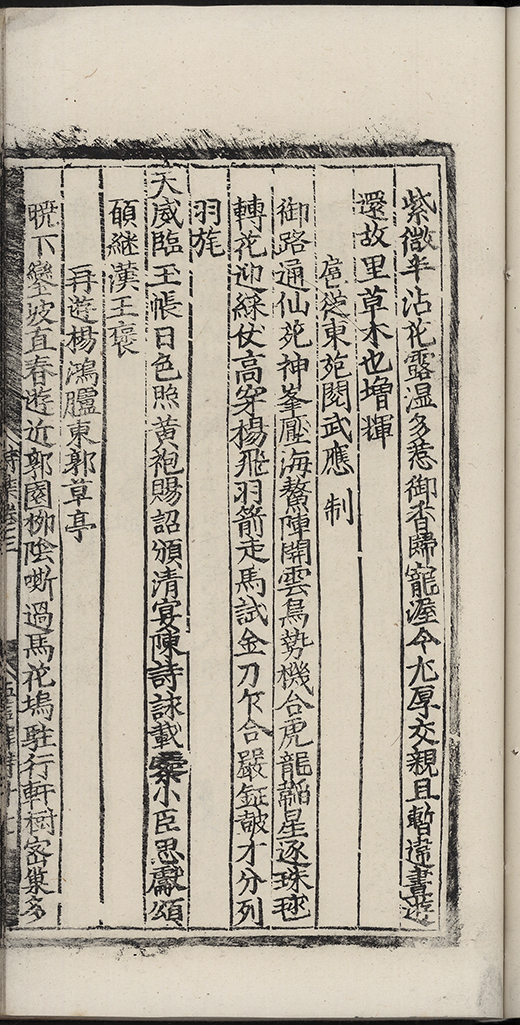 紫微半沾花露湿多惹御香歸寵渥今尤厚交親且暫違晝遊
還故里草木也增輝
扈從東苑閱武應制
御路通仙苑神峯壓海鰲陣開雲鳥勢機合虎龍韜星逐珠毬
轉花迎綵仗高穿楊飛羽箭走馬試金刀仄合嚴鉦鼓才分列
羽旄
天威臨玉帳日色照黃袍賜詔頒清宴陳詩詠載櫜小臣思獻頌
碩継漢王褒
再遊楊鴻臚東郭草亭
晚下鑾坡直春遊近郭園柳陰嘶過馬花塢駐行軒樹密巢多
詩集卷三